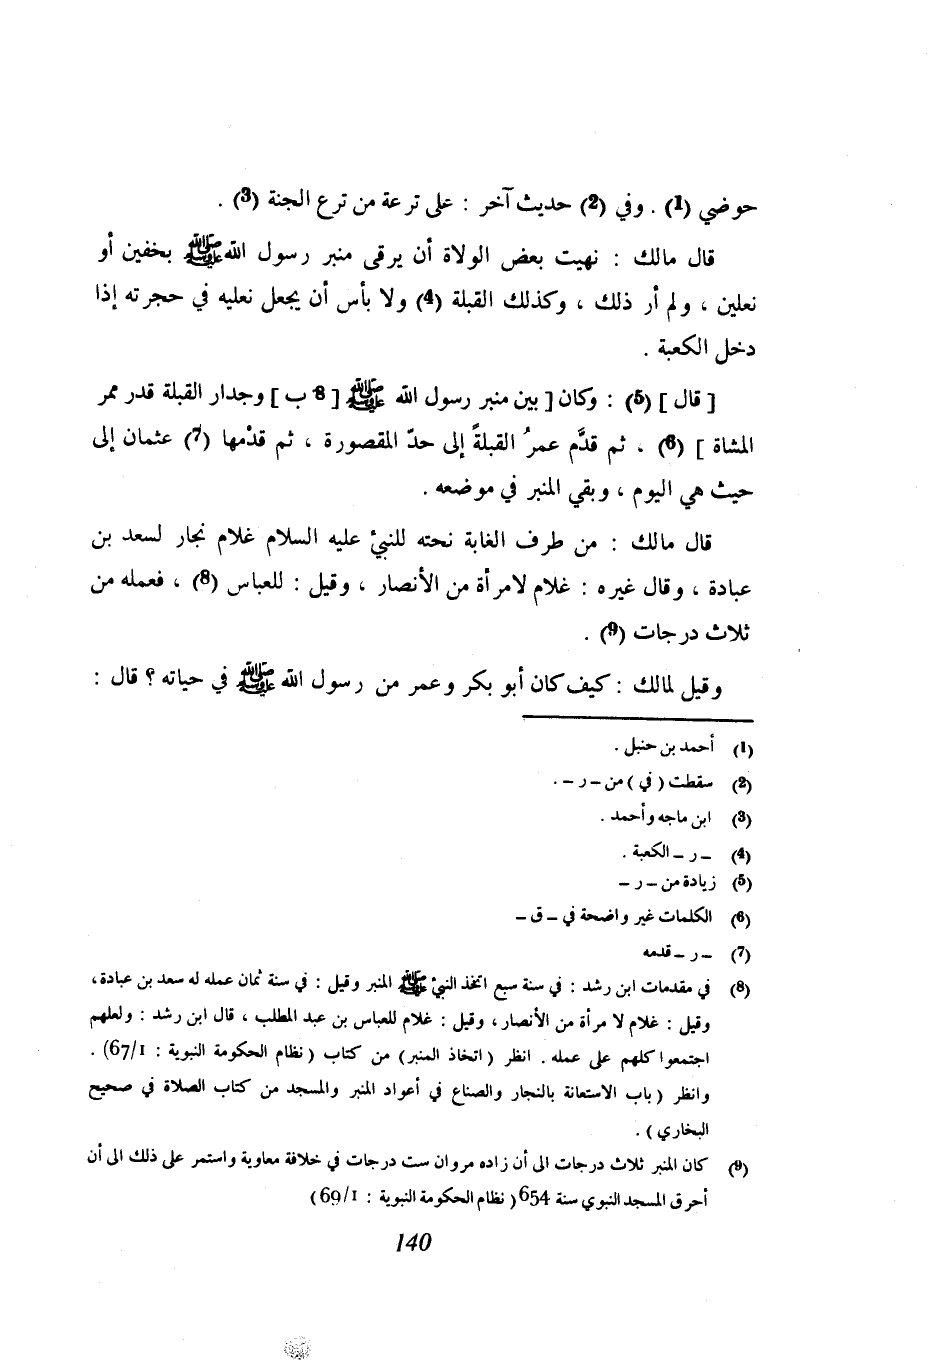 حوضي (1) . وفي (2) حديث آخر : على ترعة من ترع الجنة (3) .
قال مالك : نهيت بعض الولاة أن يرقى منبر رسول الله ﷺ بخفين أو
نعلين ، ولم أر ذلك ، وكذلك القبلة (4) ولا بأس أن يجعل نعليه في حجرته إذا
دخل الكعبة .
[ قال ] (5) : وكان [ بين منبر رسول الله ﷺ [ 8 ب ] وجدار القبلة قدر ممر
المشاة ] (6) ، ثم قدَّم عمرُ القبلةَ إلى حدّ المقصورة ، ثم قدّمها (7) عثمان إلى
حيث هي اليوم ، وبقي المنبر في موضعه .
قال مالك : من طرف الغابة نحته للنبيّ عليه السلام غلام نجار لسعد بن
عبادة ، وقال غيره : غلام لامرأة من الأنصار ، وقيل : للعباس (8) ، فعمله من
ثلاث درجات (9) .
وقيل لمالك : كيف كان أبو بكر وعمر من رسول الله ﷺ في حياته ؟ قال :
(1) أحمد بن حنبل .
(2) سقطت ( في ) من – ر – .
(3) ابن ماجه وأحمد .
(4) – ر – الكعبة .
(5) زيادة من – ر –
(6) الكلمات غير واضحة في – ق –
(7) – ر – قدمه
(8) في مقدمات ابن رشد : في سنة سبع اتخذ النبيّ ﷺ المنبر وقيل : في سنة ثمان عمله له سعد بن عبادة ،
وقيل : غلام لا مرأة من الأنصار ، وقيل : غلام للعباس بن عبد المطلب ، قال ابن رشد : ولعلهم
اجتمعوا كلهم على عمله . انظر ( اتخاذ المنبر ) من كتاب ( نظام الحكومة النبوية : 1/67) .
وانظر ( باب الاستعانة بالنجار والصناع في أعواد المنبر والمسجد من كتاب الصلاة في صحيح
البخاري ) .
(9) كان المنبر ثلاث درجات الى أن زاده مروان ست درجات في خلافة معاوية واستمر على ذلك الى أن
أحرق المسجد النبوي سنة 654 ( نظام الحكومة النبوية : 1/69 )
140